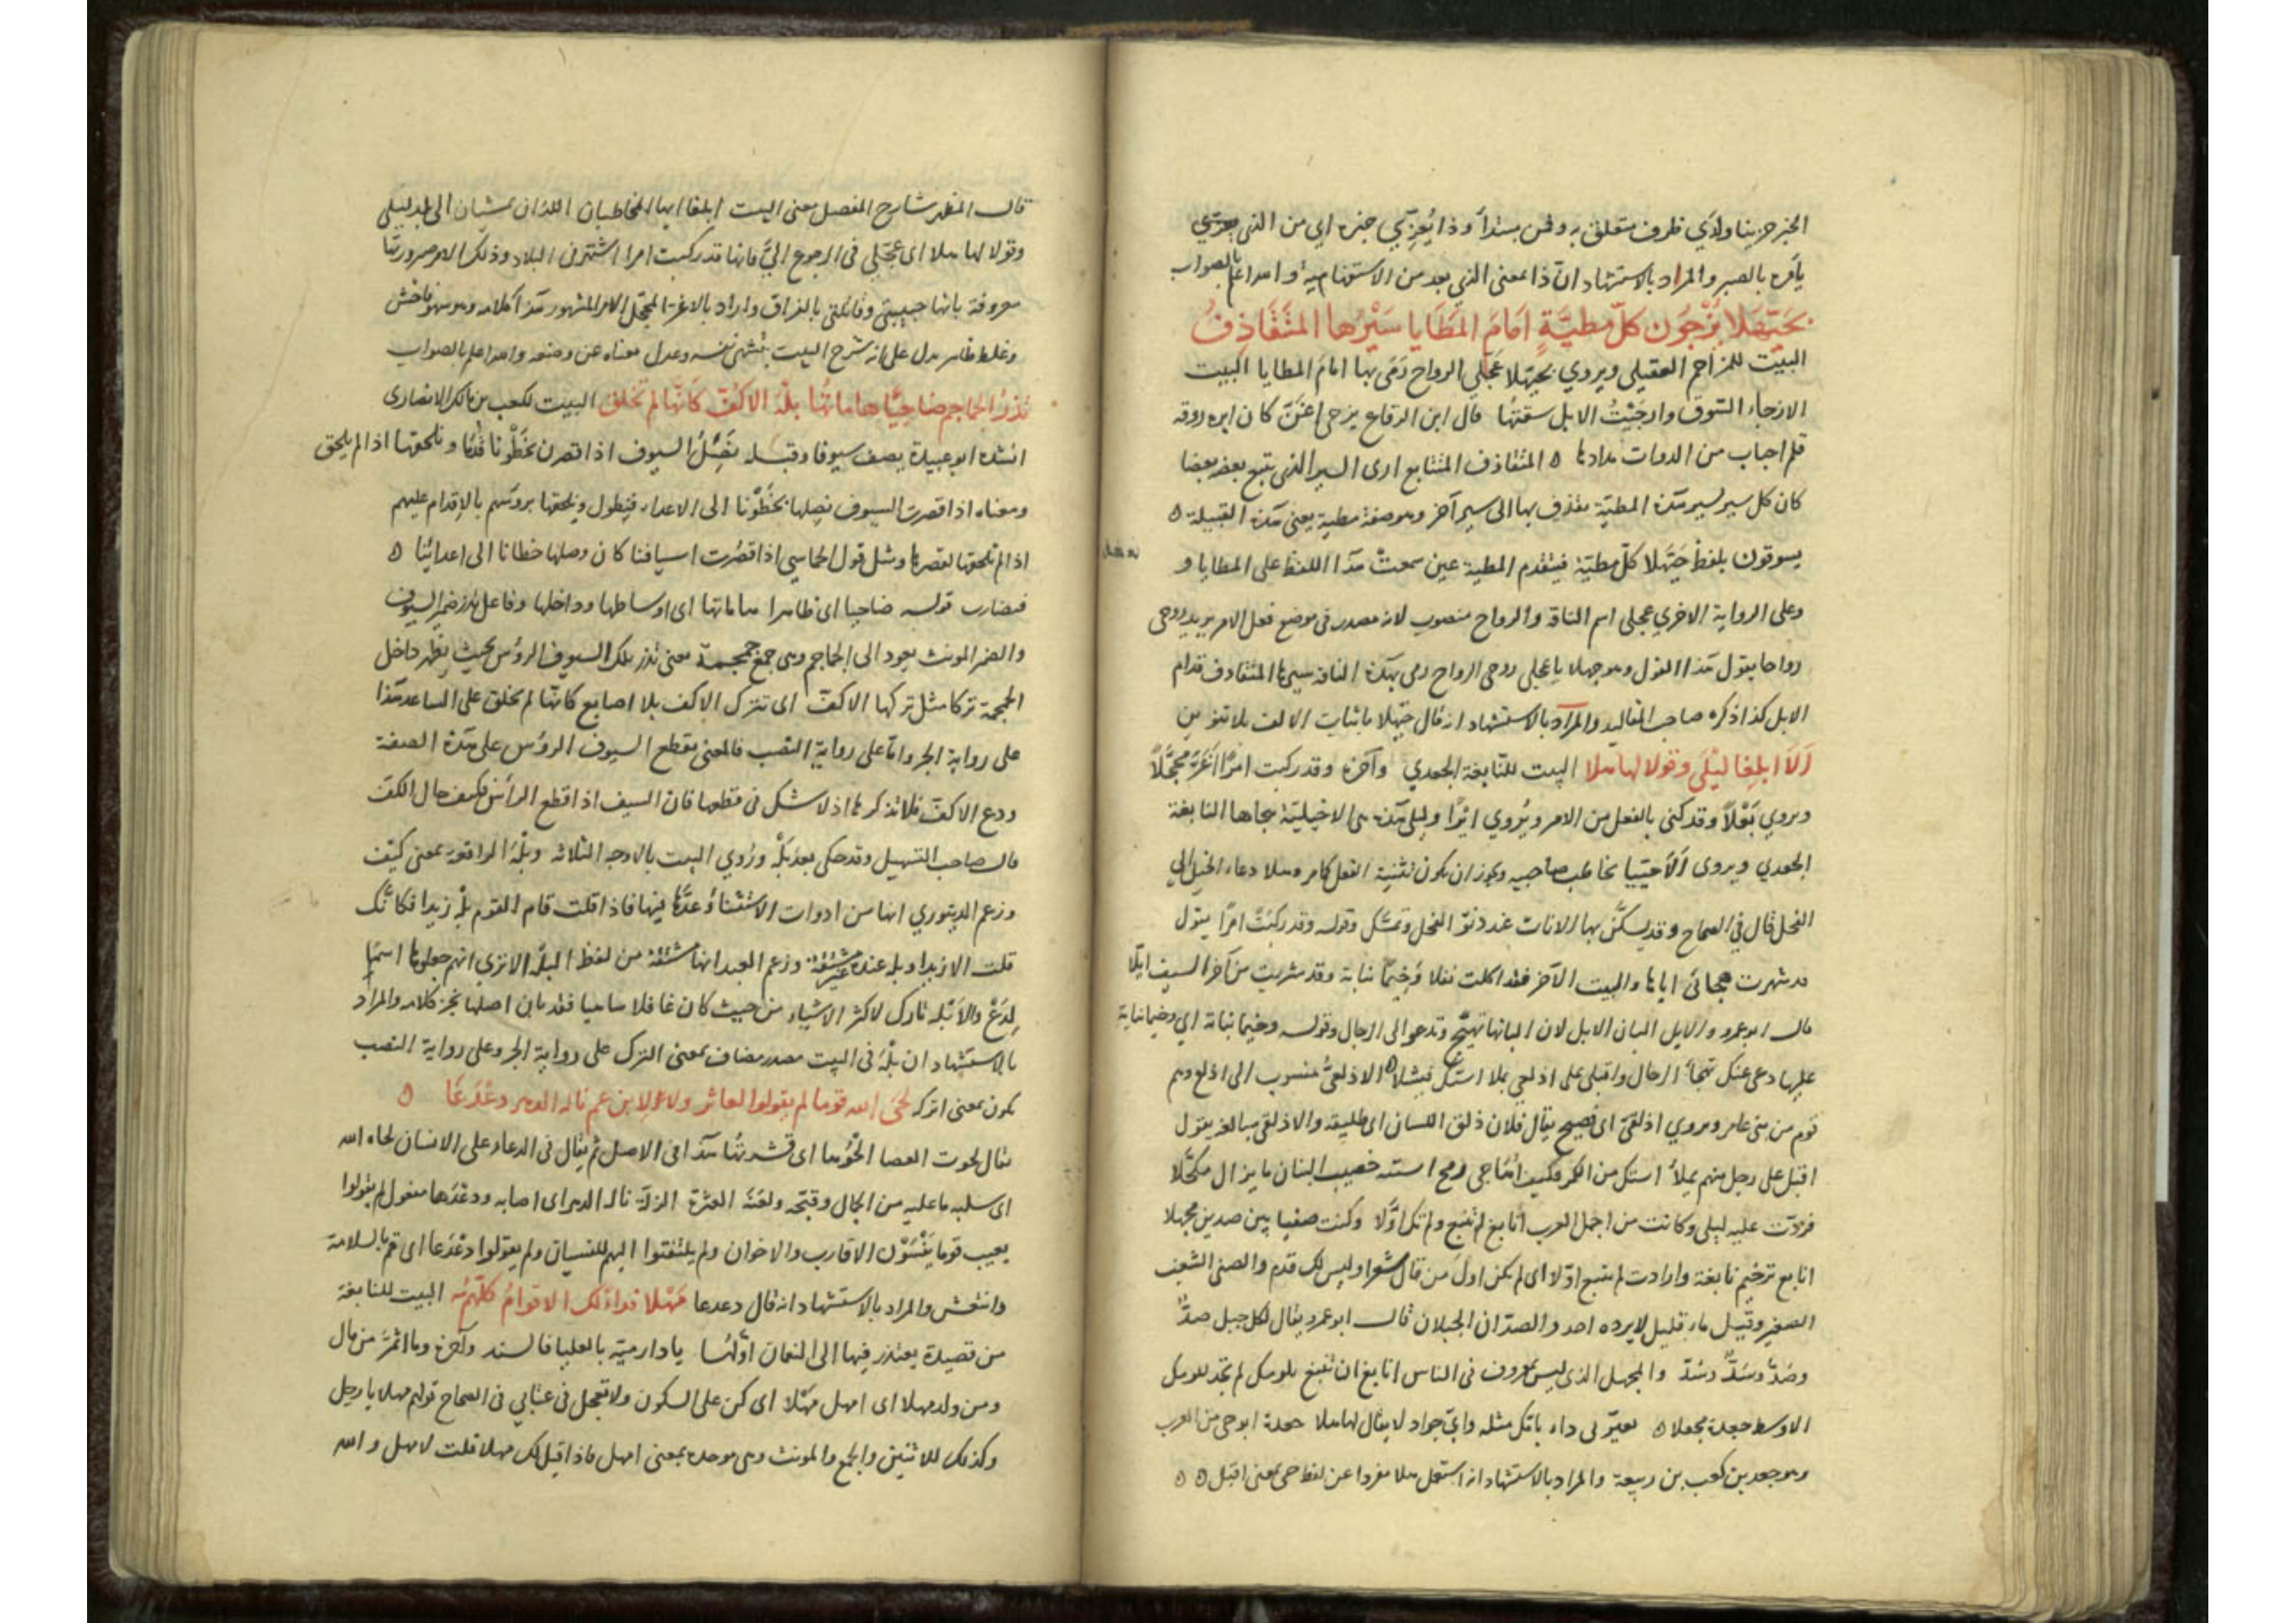 الخبر حزينا ولدي ظرف متعلق به وفمن مبتدأ وذا يُعزّيي خبره اي من الذي يعزّي
يأمره بالصبر والمراد بالاستشهاد انّ ذا بمعنى الذي بعد من الاستفهامية والله اعلم بالصواب
بحَيّهَلا يُزْجُون كلّ مطيّةٍ اَمَامَ المَطَايا سَيْرُها المتَقَاذِفُ
البيت للمزاحم العقيلى ويروي بحيّهلا عَجَلى الرواح رَمَى بها امامَ المطايا البيت
الازجاء السَّوق وازجَيْتُ الابل سقتها قال ابن الرقاع يزجى اغنّ كان ابره روقه
قلم اصاب من الدوات مدادها ه المتقاذف المتتابع ارى السير الذي يتبع بعضه بعضا
كان كل سير يسير هذه المطيّة يقذف بها الى سير آخر وهو صفة مطية يعنى هذه القبيلة ه
يسوقون بلفظ حَيَّهَلا كلّ مطيّة فيتقدم المطية عين سمعتْ هذا اللفظ على المطايا و
وعلى الرواية الاخري عجلى اسم الناقة والرواح منصوب لانه مصدر فى موضع فعل الامر يريد روحى
رواحا يقول هذا القول وهو حيهلا يا عجلى روحى الرواح رمى بهذه الناقة سيرها المتقاذف قدام
الابل كذا ذكره صاحب المقاليد والمراد بالاستشهاد انه قال حيّهلا باثبات الالف بلا تنوين
اَلَا ابلِغا ليْلَى وقولا لها هلا البيت للنّابغة الجعدي وآخره وقد ركبت امرًا اَغَرّ محجّلًا
ويروي بَغْلًا وقد كنى بالفعل من الامر ويُروي ايْرًا وليلى هذه هى الاخيليّة هجاها النابغة
الجعدي ويروى اَلَا حَيّيا يخاطب صاحبيه ويجوز ان يكون تثنية الفعل كامر وهلا دعاء الخيل الي
الفحل قال في الصحاح وقد يسكَّن بها الاناث عند دنوّ الفحل وقوله وقد ركبَتْ امرًا يقول
قد شهرت هجائى اياها والبيت الآخر فقد اكلت بقلا وَخِيمًا نباته وقد شربت من آخر الصيف ايّلا
قال ابو عمرو والايل البان الابل لان البانها تهيّج وتدعو الى الرجال وقوله وخيما نباته اي وخيما نباته
عليها دعى عنك تهجاءَ الرجال واقبلى على اذلغى يملا استك فيشلا ه الاذلغىّ منسوب الى اذلغ وهم
قوم من بنى عامر ويروي اذلقىّ اى فصيح يقال فلان ذلق اللسان اى طليقه والاذلقى مبالغه يقول
اقبل على رجل منهم يملأ استك من الكمر وكيف اُهَاجى رمح استه خضيب البنان ما يزال مكحَّلا
فردّت عليه ليلى وكانت من اجمل العرب أنابغ لم تنبغ ولم تك اوّلا وكنت صنيا بين صدين مجهلا
انابغ ترخيم نابغة وارادت لم تنبغ اوّلا اى لم يكن اول من قال شعرا وليس لك قدم والصنى الشعب
الصغير وقيل ماء قليل لا يرده احد والصدّان الجبلان قال ابو عمرو يقال لكل جبل صدٌّ
وصُدٌّ وسَدٌّ وسُدٌّ والمجهل الذى ليس بمعروف فى الناس انابغ ان تنبغ بلومك لم تجد للومك
الاوسط جعدة مجعلا ه تعيرّنى داء بامّك مثله وايّ جواد لا يقال لها هلا جعدة ابو حى من العرب
وهو جعد بن كعب بن ربيعة والمراد بالاستشهاد انه استعمل هلا مفردا عن لفظ حى بمعنى اقبل ه ه
قال المظهر شارح المفصل معنى البيت ابلغا ايها المخاطبان اللذان يمشيان الى بلد ليلى
وقولا لها هلا اى عجّلى فى الرجوع اليّ فانها قد ركبت امرا اشتهر فى البلاد وذلك الامر صيرورتها
معروفة بانها حبيبتى وقاتلتى بالفراق واراد بالاغرّ المحجّل الامر المشهور هذا كلامه وهو سهو فاحش
وغلط ظاهر يدل على انه شرح البيت بتشهى نفسه وعدل معناه عن وضعه والله اعلم بالصواب
تذرُ الجماجم ضاحيًا هاماتُها بلْهَ الاكُفّ كَانّها لم تخلق البيت لكعب بن مالك الانصارى
انشده ابو عبيدة يصف سيوفا وقبله نَصِلُ السيوف اذا قصرن بخَطْونا قُدُمًا ونلحقها اذا لم يلحق
ومعناه اذا قصرت السيوف نصلها بخَطْوِنا الى الاعداء فيطول ونلحقها برؤسهم بالاقدام عليهم
اذا لم تلحقها لقصرها ومثل قول الحماسي اذا قصُرت اسيافنا كان وصلها خطانا الى اعدائنا ه
فنضارب قوله ضاحيا اى ظاهرا هاماتها اى اوساطها وداخلها وفاعل تذر ضمير السيوف
والضمير المونث يعود الى الجماجم وهى جمع جمجمة يعنى تذر تلك السيوف الرؤس بحيث يظهر داخل
الجمجمة تركا مثل تركها الاكفّ اى تترك الاكف بلا اصابع كانّها لم تخلق على الساعد هذا
على رواية الجر وامّا على رواية النصب فالمعنى يقطع السيوف الرؤس على هذه الصفة
ودع الاكفّ فلا تذكرها اذ لا شك فى قطعها فان السيف اذا قطع الرأس فكيف حال الكفّ
قال صاحب التسهيل وقد حكى بعد بَلْه ورُوي البيت بالاوجه الثلاثه وبَلْهَ المرافوعة بمعنى كيْف
وزعم الدينوري انها من ادوات الاستثناء وعدَّها فيها فاذا قلت قام القوم بلْه زيدا فكانّك
قلت الا زيدا وبله عنده وزعم العبد انها مشتقة من لفظ البله الا ترى انهم جعلوها اسمًا
لِدَعْ والاَبْله تارك لاكثر الاشياء من حيث كان غافلا ساهيا فقد بان اصلها نجز كلامه والمراد
بالاستشهاد ان بَلْهَ فى البيت مصدر مضاف بمعنى الترك على رواية الجر وعلى رواية النصب
يكون بمعنى اترك لحَى الله قوما لم يقولوا لعاثر ولا لابن عم ناله الدهر دعْدَعَا ه
يقال لحوت العصا الْحُوها اى قشرتُها هذا فى الاصل ثم يقال فى الدعاء على الانسان لحاه الله
اى سلبه ما عليه من الجمال وقبّحه ولعَنَه العثرة الزلّة ناله الدهر اى اصابه ودعْدَعا مفعول لم يقولوا
يعيب قوما يَنْسَوْن الاقارب والاخوان ولم يلتفتوا اليهم للنسيان ولم يقولوا دعْدَعا اى قم بالسلامة
وانتعش والمراد بالاستشهاد انه قال دعدعا مَهْلا فداءً لك الاقوامُ كلّهم البيت للنابغة
من قصيدة يعتذر فيها الى النعمان اوّلها يا دار مية بالعليا فالسند وآخره وما اثمّرُ من مال
ومن ولد مهلا اى امهل مَهْلا اى كن على السكون ولا تعجل فى عتابي فى الصحاح قولهم مهلا يا رجل
وكذلك للاثنين والجمع والمونث وهى موحدة بمعنى امهل فاذا قيل لك مهلا قلت لا مهل والله